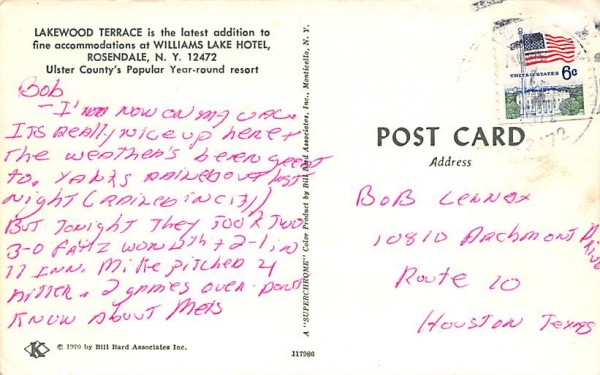 LAKEWOOD TERRACE is the latest addition to
fine accommodations at WILLIAMS LAKE HOTEL,
ROSENDALE, N. Y. 12472
Ulster County's Popular Year-round resort
Bob
- I'm now on my vac.
Its really nice up here +
the weather's been great
to. Yanks rained out last
night (rained in city)
But tonight they took two
3-0 Fritz won 8th + 2-1 in
11 INN. Mike pitched 4
hitter. 2 games over. Don't
know about Mets
© 1970 by Bill Bard Associates Inc.
K
A "SUPERCHROME" Color Product by Bill Bard Associates, Inc., Monticello, N. Y.
117986
UNITED STATES 6c
12472
POST CARD
Address
Bob Lennox
10810 Archmont Drive
Route 10
Houston Texas